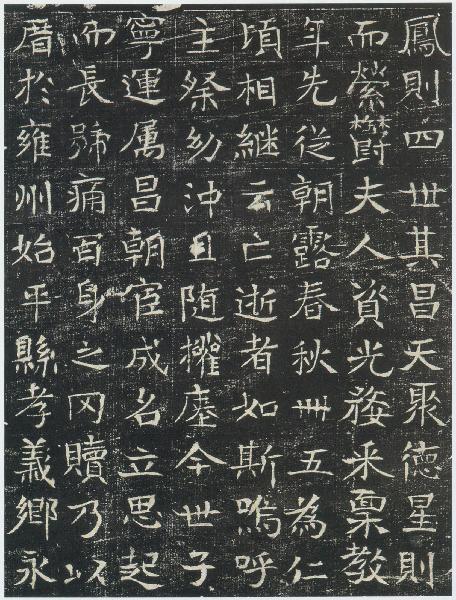 鳳則四世其昌天聚德星則
而縈欝夫人資光婺采稟教
年先從朝露春秋卌五為仁
頃相繼云亡逝者如斯嗚呼
主祭幼沖且随攉塵今世子
寧運属昌朝宦成名立思起
而長號痛百身之冈贖乃以
厝於雍州始平縣孝義鄉永